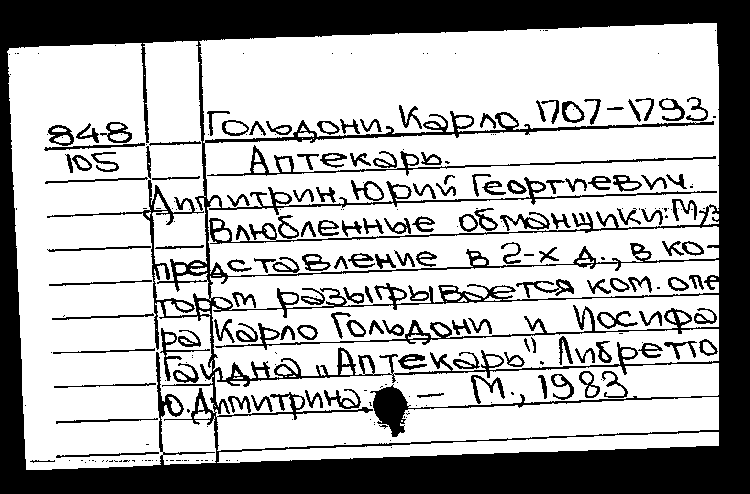 848 Гольдони, Карло, 1707-1793.
105 Аптекарь.
Димитрин, Юрий Георгиевич.
Влюбленные обманщики: Муз
представление в 2-х д., в ко-
тором разыгрывается ком. опе
ра Карло Гольдони и Иосифа
Гайдна "Аптекарь". Либретто
Ю. Димитрина. - М., 1983.